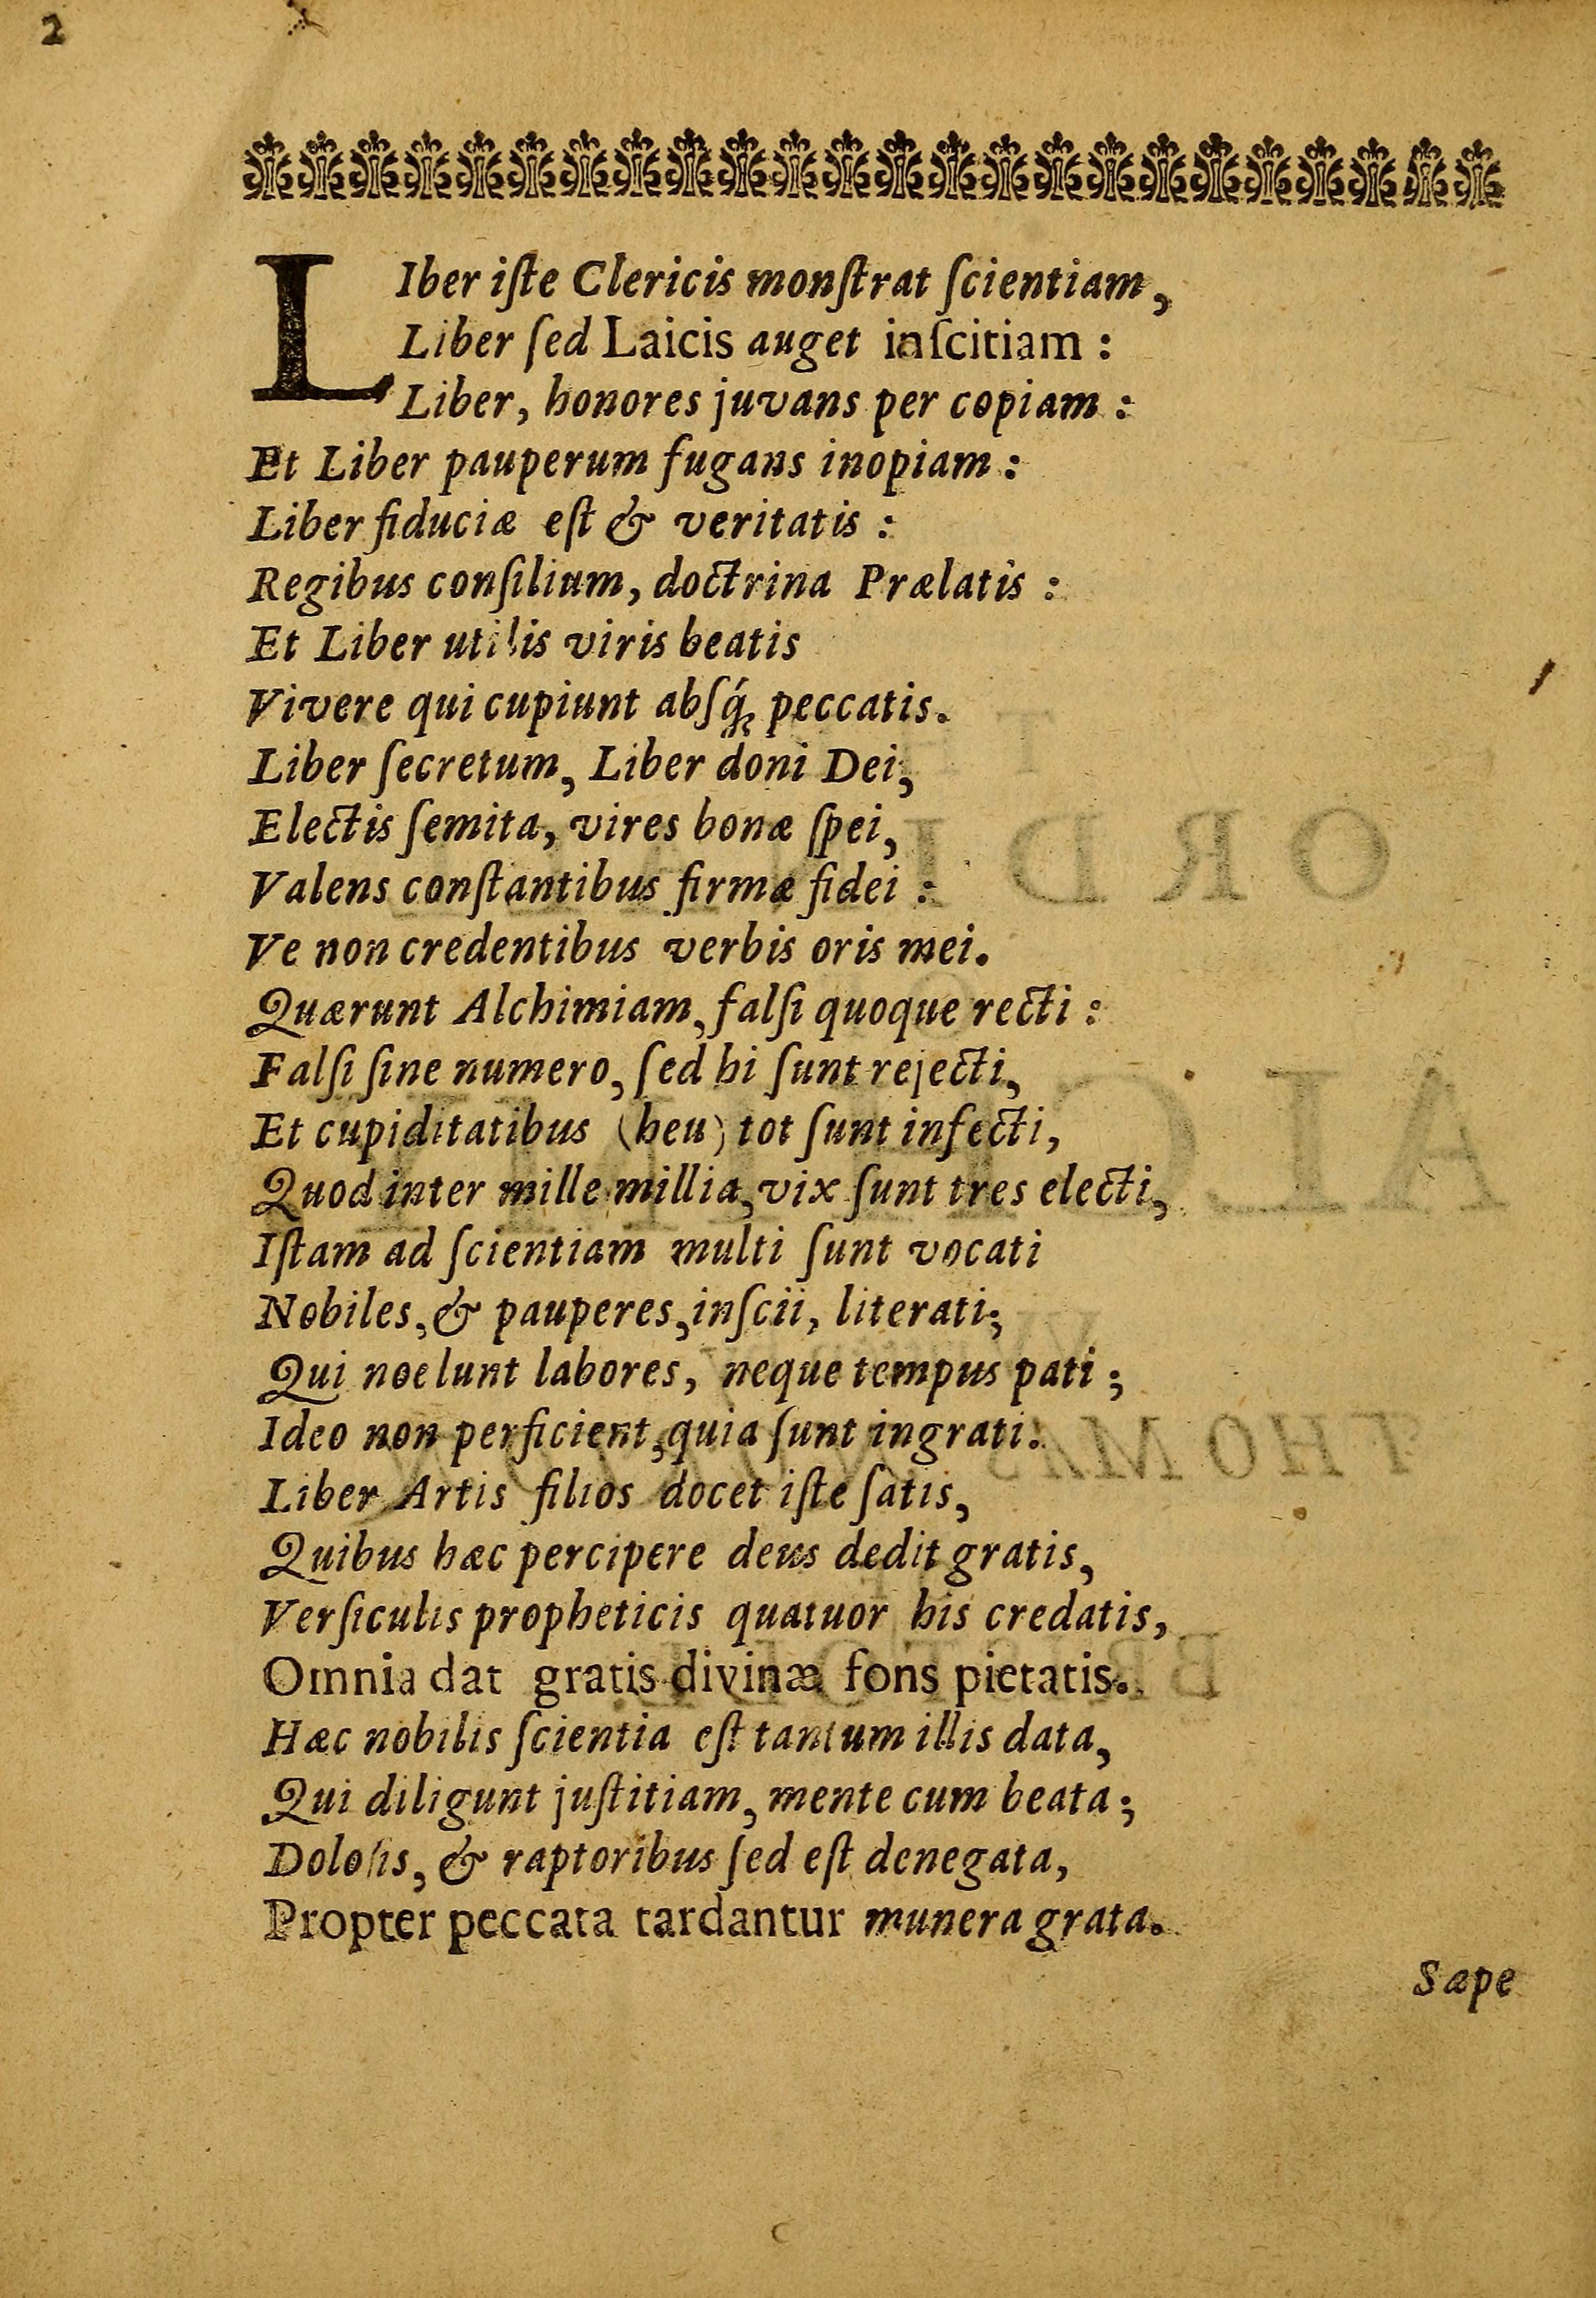 2
LIber iſte Clericis monſtrat ſcientiam,
Liber ſed Laicis auget inſcitiam :
Liber, honores juvans per copiam :
Et Liber pauperum fugans inopiam :
Liber fiduciæ eſt & veritatis :
Regibus conſilium, doctrina Prælatis :
Et Liber utilis viris beatis
Vivere qui cupiunt abſq́; peccatis.
Liber ſecretum, Liber doni Dei,
Electis ſemita, vires bonæ ſpei,
Valens conſtantibus firmæ fidei :
Ve non credentibus verbis oris mei.
Quærunt Alchimiam, falſi quoque recti :
Falſi ſine numero, ſed hi ſunt rejecti,
Et cupiditatibus (heu) tot ſunt infecti,
Quod inter mille millia, vix ſunt tres electi,
Iſtam ad ſcientiam multi ſunt vocati
Nobiles, & pauperes, inſcii, literati;
Qui noelunt labores, neque tempus pati ;
Ideo non perficient, quia ſunt ingrati.
Liber Artis filios docet iſte ſatis,
Quibus hæc percipere deus dedit gratis,
Verſiculis propheticis quatuor his credatis,
Omnia dat gratis divinæ fons pietatis.
Hæc nobilis ſcientia eſt tantum illis data,
Qui diligunt juſtitiam, mente cum beata ;
Doloſis, & raptoribus ſed eſt denegata,
Propter peccata tardantur munera grata.
Sæpe